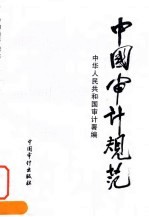 中國审计規范
中华人民共和国审计署编
中国审计出版社